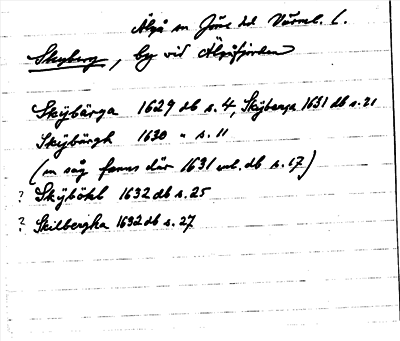 Älgå sn Jösse hd Värml. l.
Skyberg, by vid Älgåfjorden
Skÿbärga 1629 db s. 4, Skÿberga 1631 db s. 21
Skÿbärgh 1630 " s. 11
(en såg fanns där 1631 enl. db s. 17)
? Skÿböhl 1632 db s. 25
? Skilbergha 1632 db s. 27